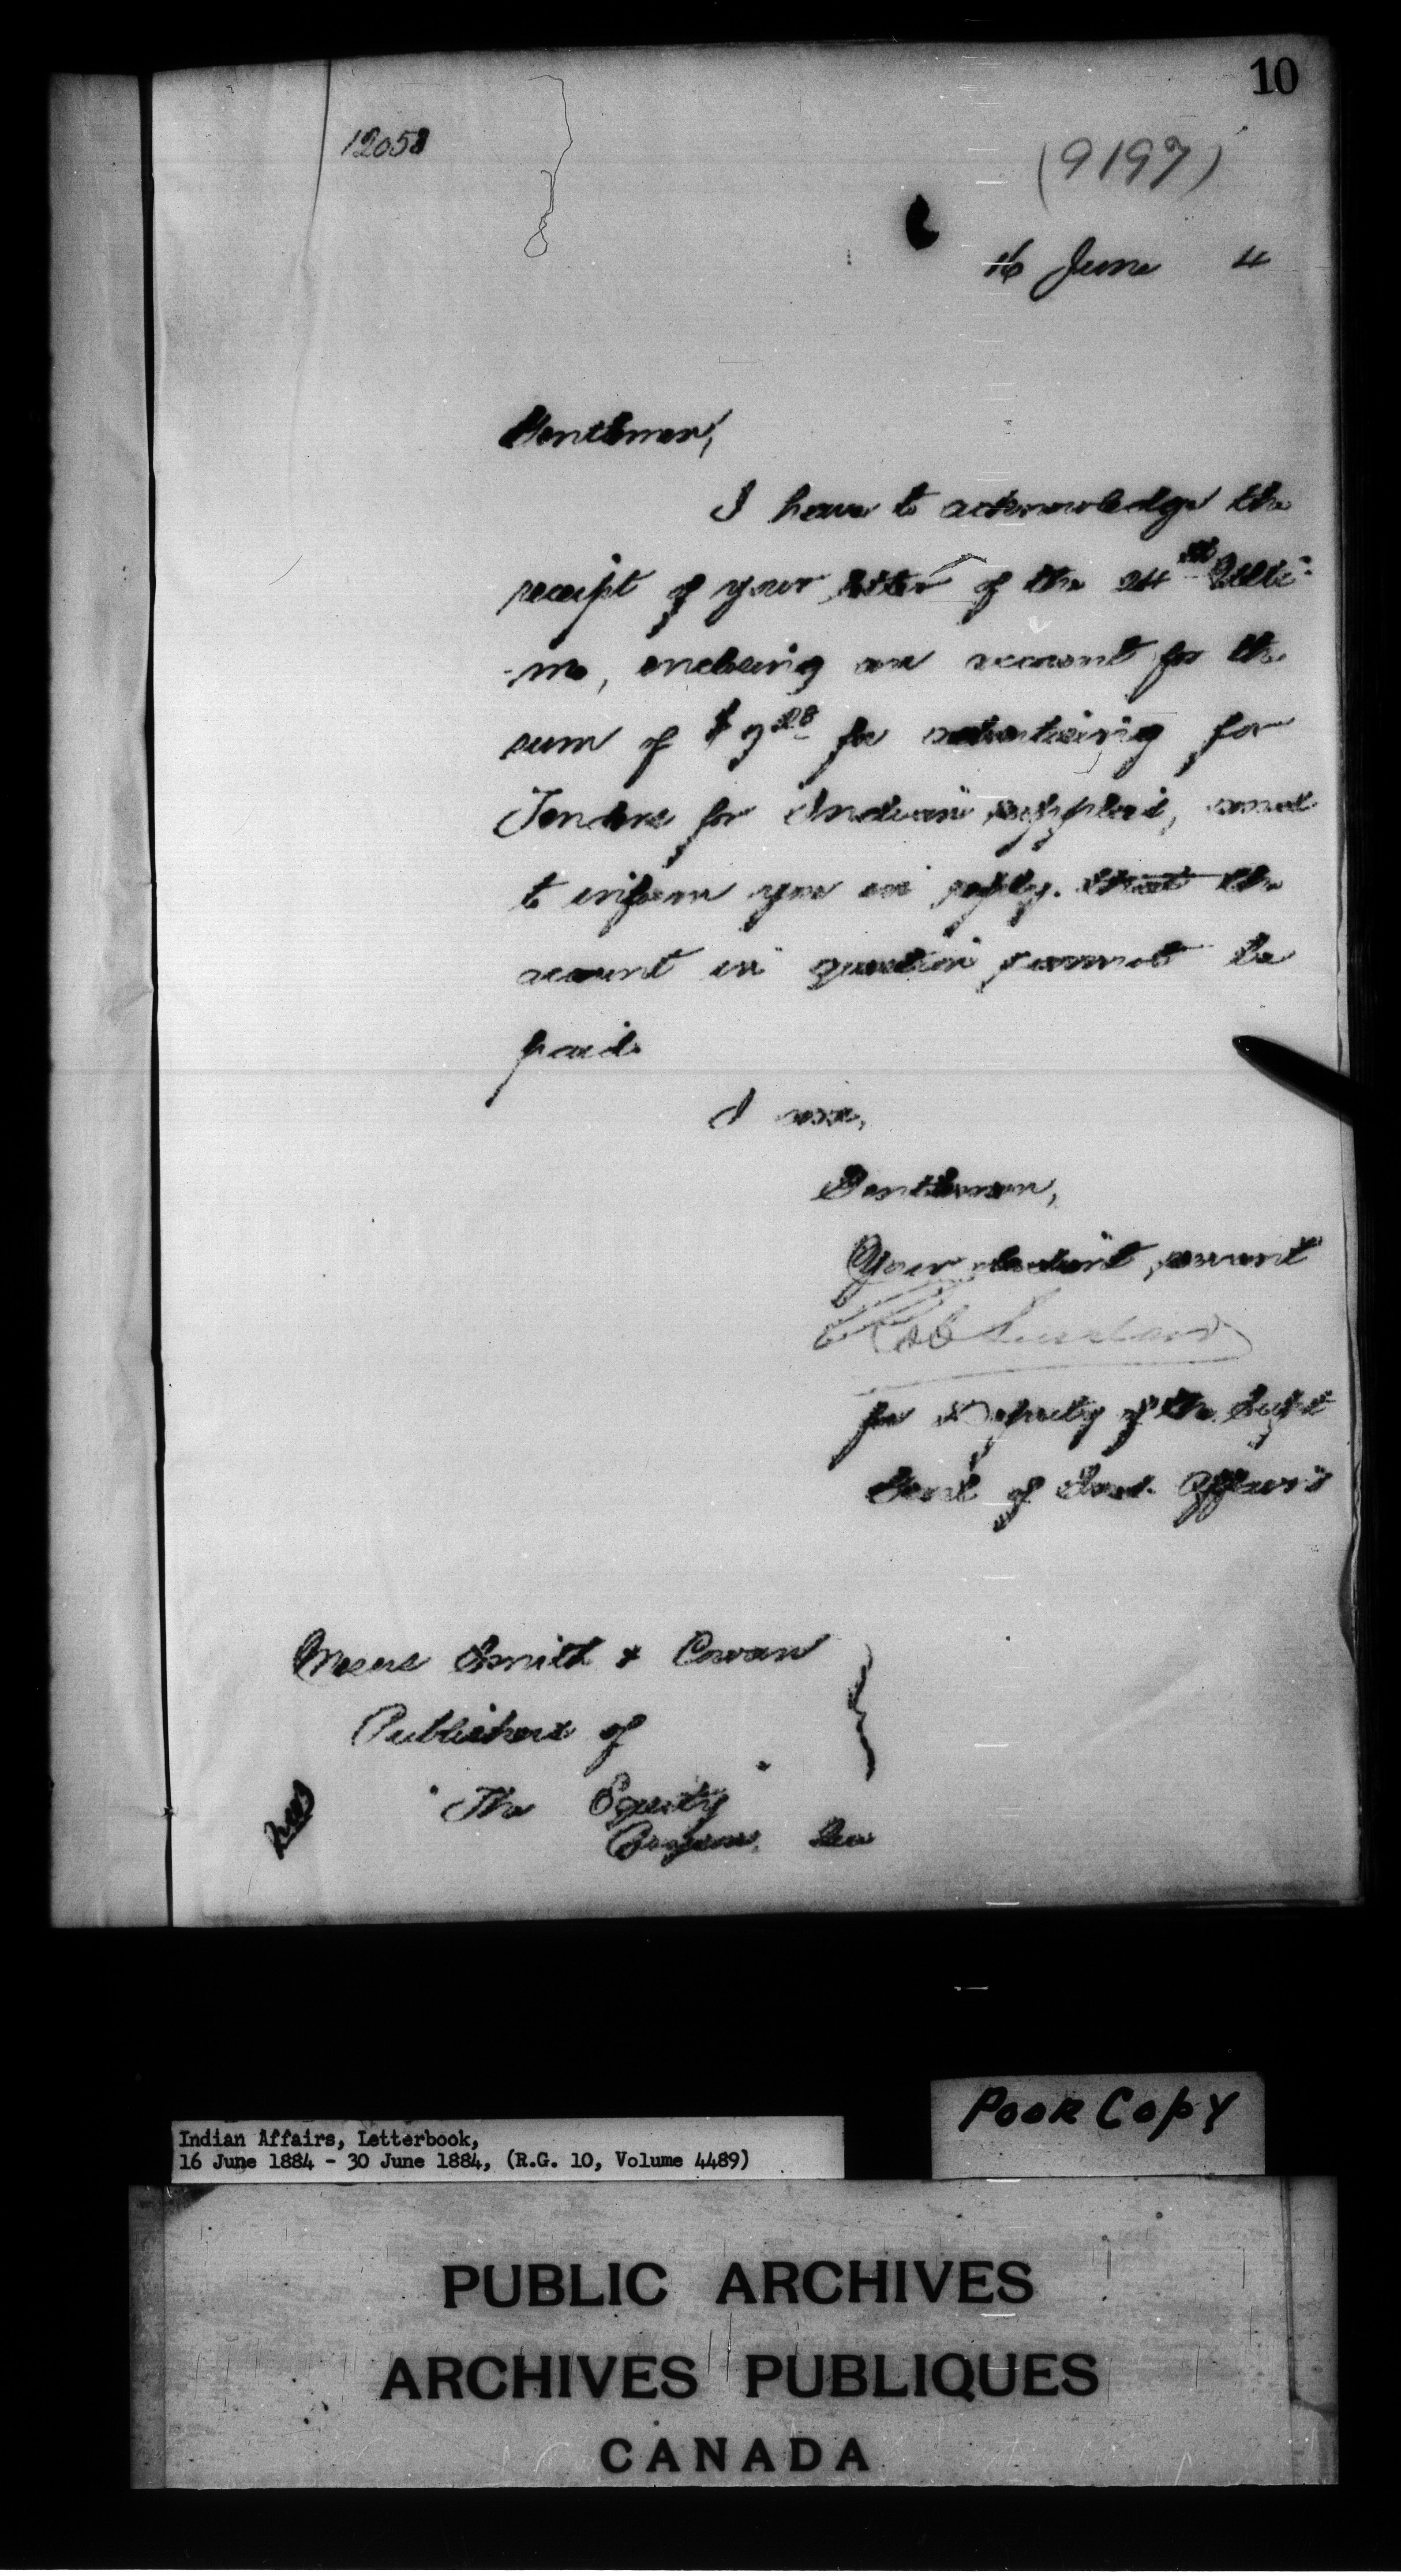 10
12058
(9197)
16 June 4
Gentlemen,
I have to acknowledge the
receipt of your letter of the 24th Ulti-
-mo, enclosing an account for the
sum of $ 9 28 for advertising for
Tenders for Indian supplies, and
to inform you in reply that the
account in question cannot be
paid.
I am,
Gentlemen,
Your obedient servant
for Deputy of the Supt
Genl of Ind. Affairs
Messrs Smith & Cowan
Publishers of
"The Equity"
Que
Poor Copy
Indian Affairs, Letterbook,
16 June 1884 - 30 June 1884, (R.G. 10, Volume 4489)
PUBLIC ARCHIVES
ARCHIVES PUBLIQUES
CANADA